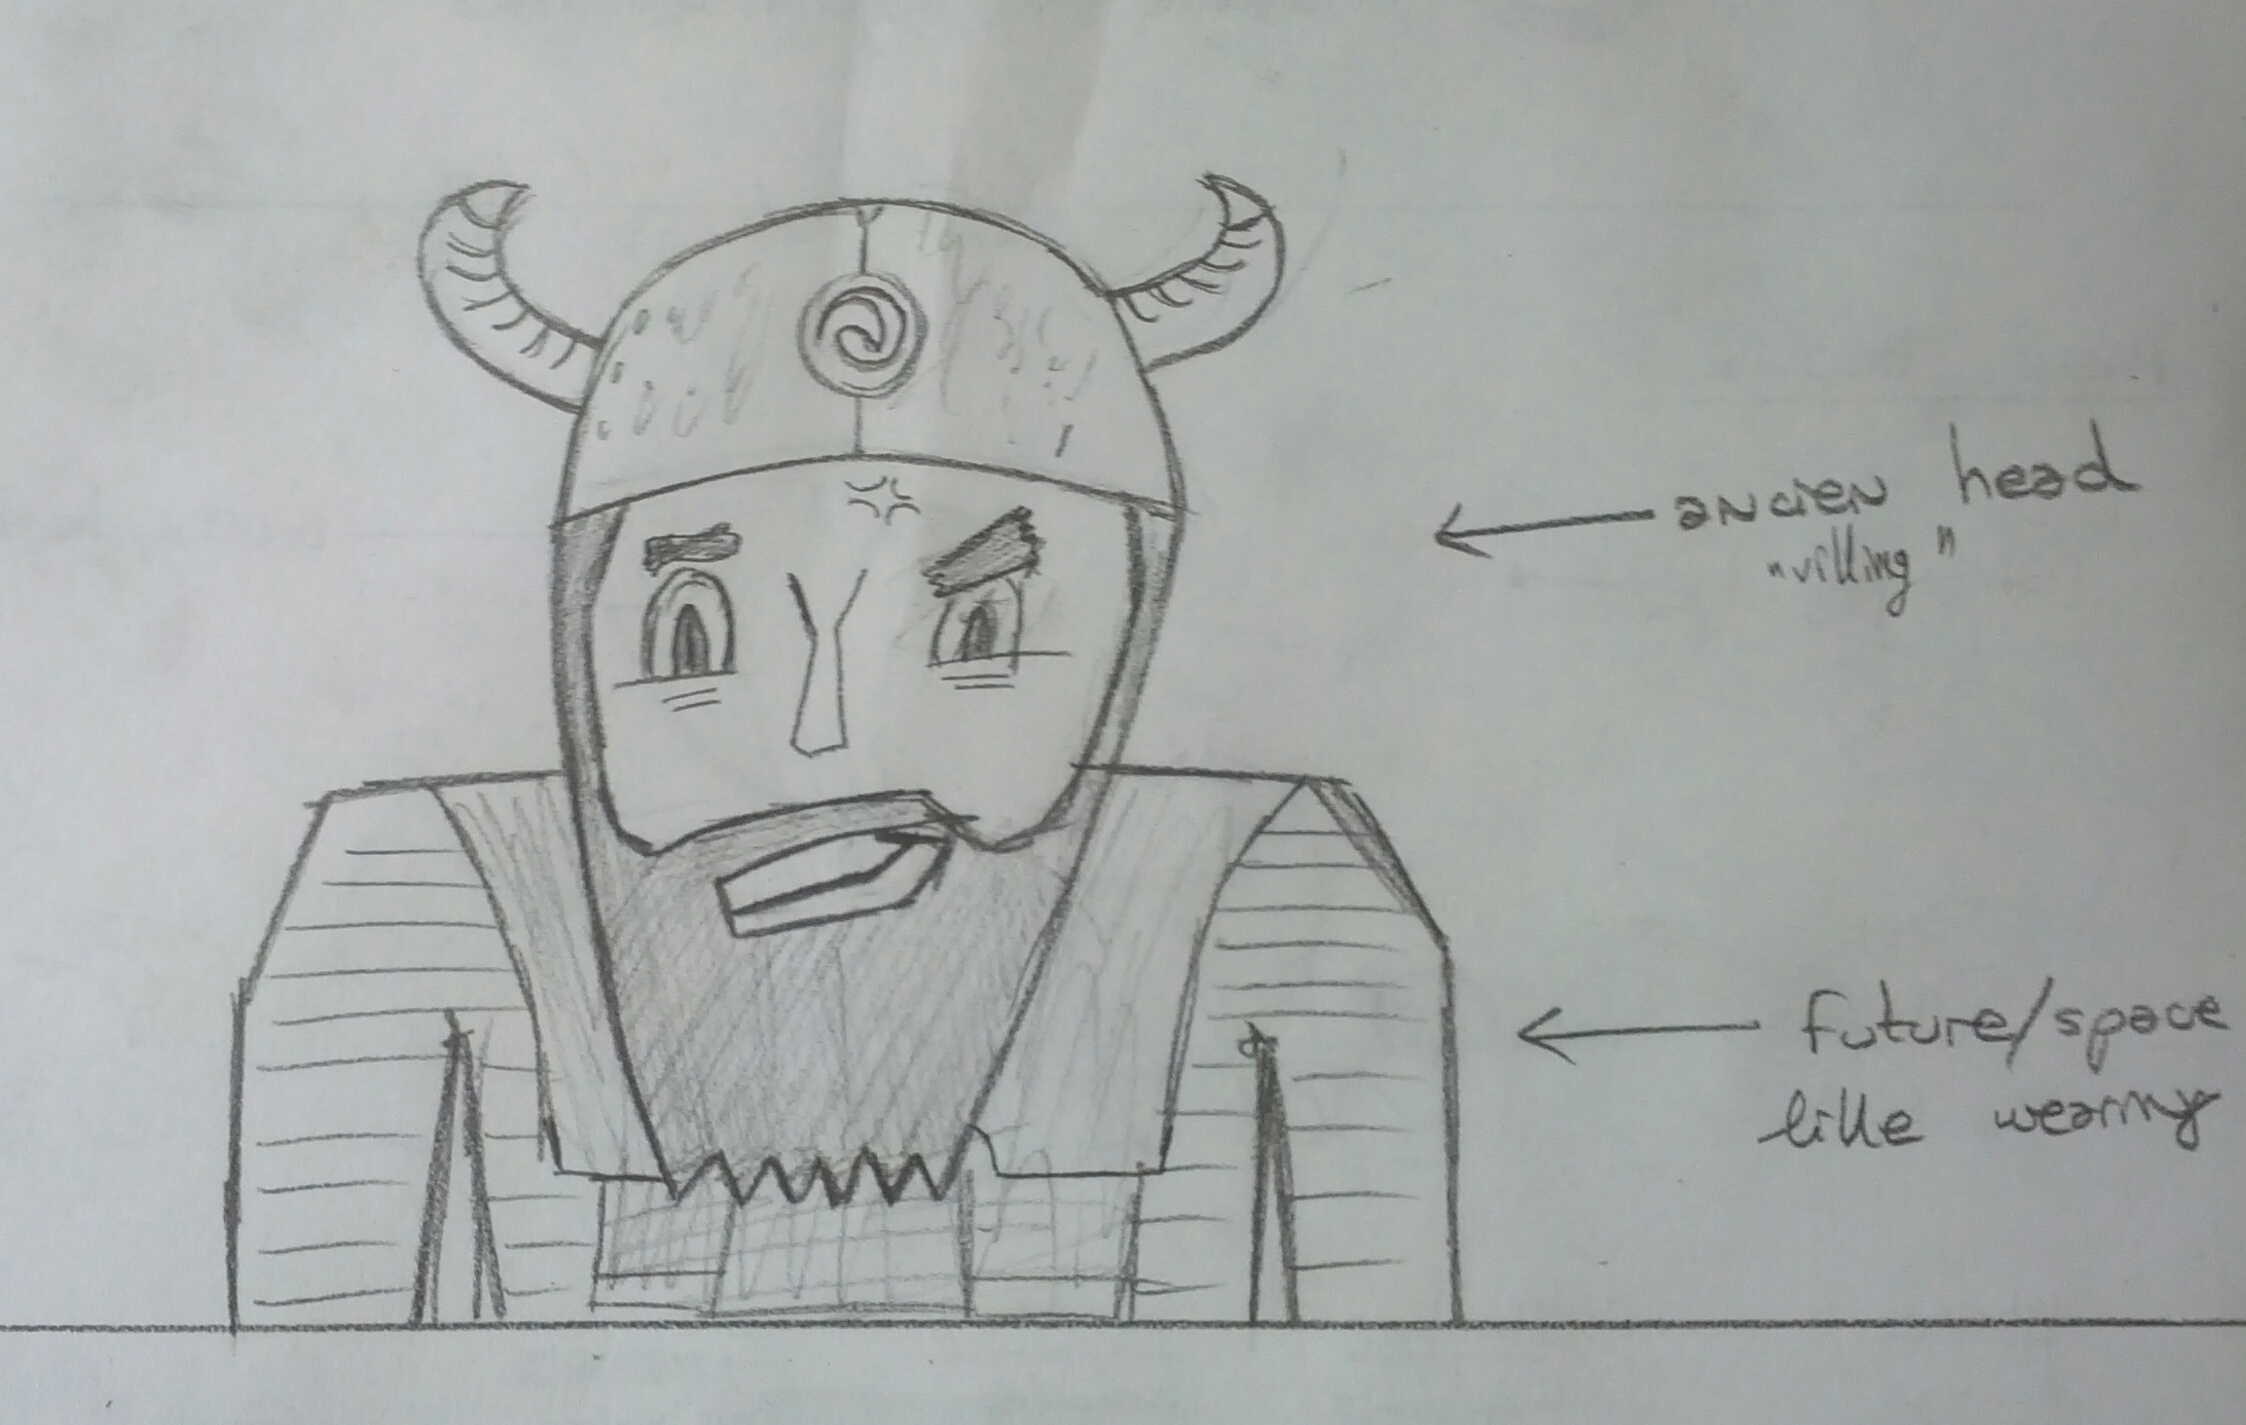 ancien head
"viking"
future/space
like wearing